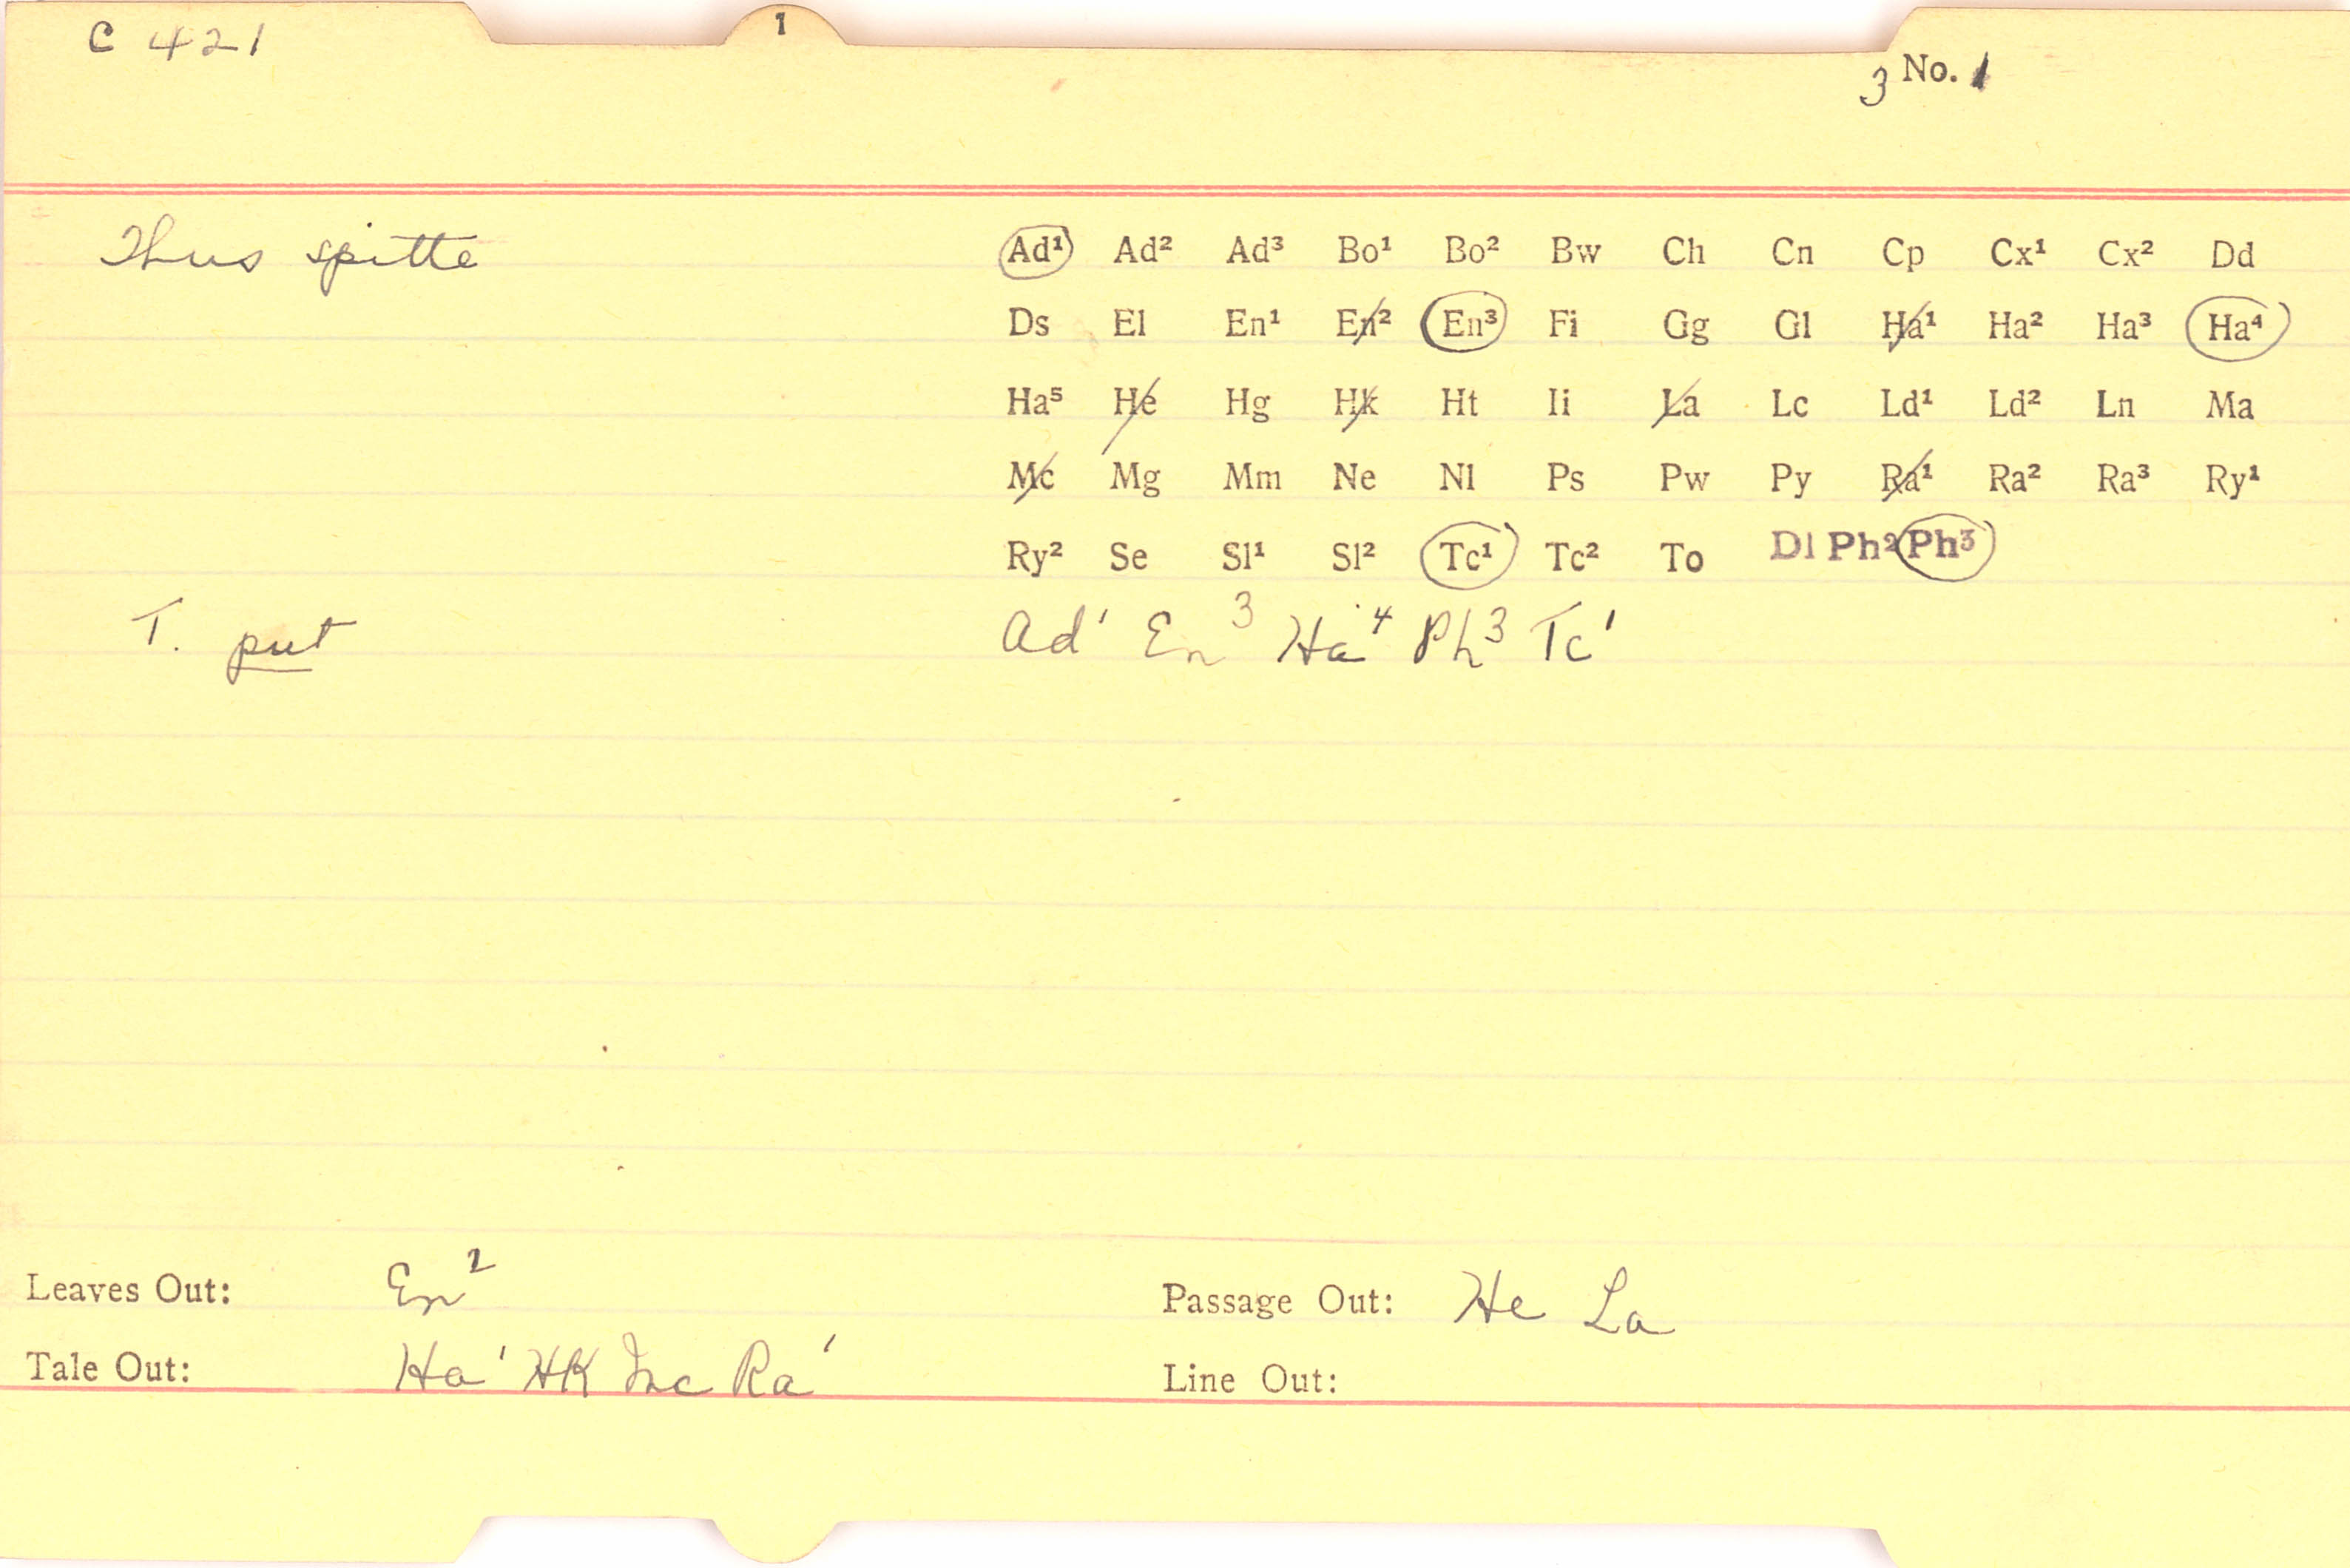 1
C 421
3 No. 1
Thus spitte Ad¹ Ad² Ad³ Bo¹ Bo² Bw Ch Cn Cp Cx¹ Cx² Dd
Ds El En¹ En² En³ Fi Gg Gl Ha¹ Ha² Ha³ Ha⁴
Ha⁵ He Hg Hk Ht Ii La Lc Ld¹ Ld² Ln Ma
Mc Mg Mm Ne Nl Ps Pw Py Ra¹ Ra² Ra³ Ry¹
Ry² Se Sl¹ Sl² Tc¹ Tc² To Dl Ph² Ph³
T. put Ad¹ En³ Ha⁴ Ph³ Tc¹
Leaves Out: En² Passage Out: He La
Tale Out: Ha¹ HK Mc Ra¹ Line Out: